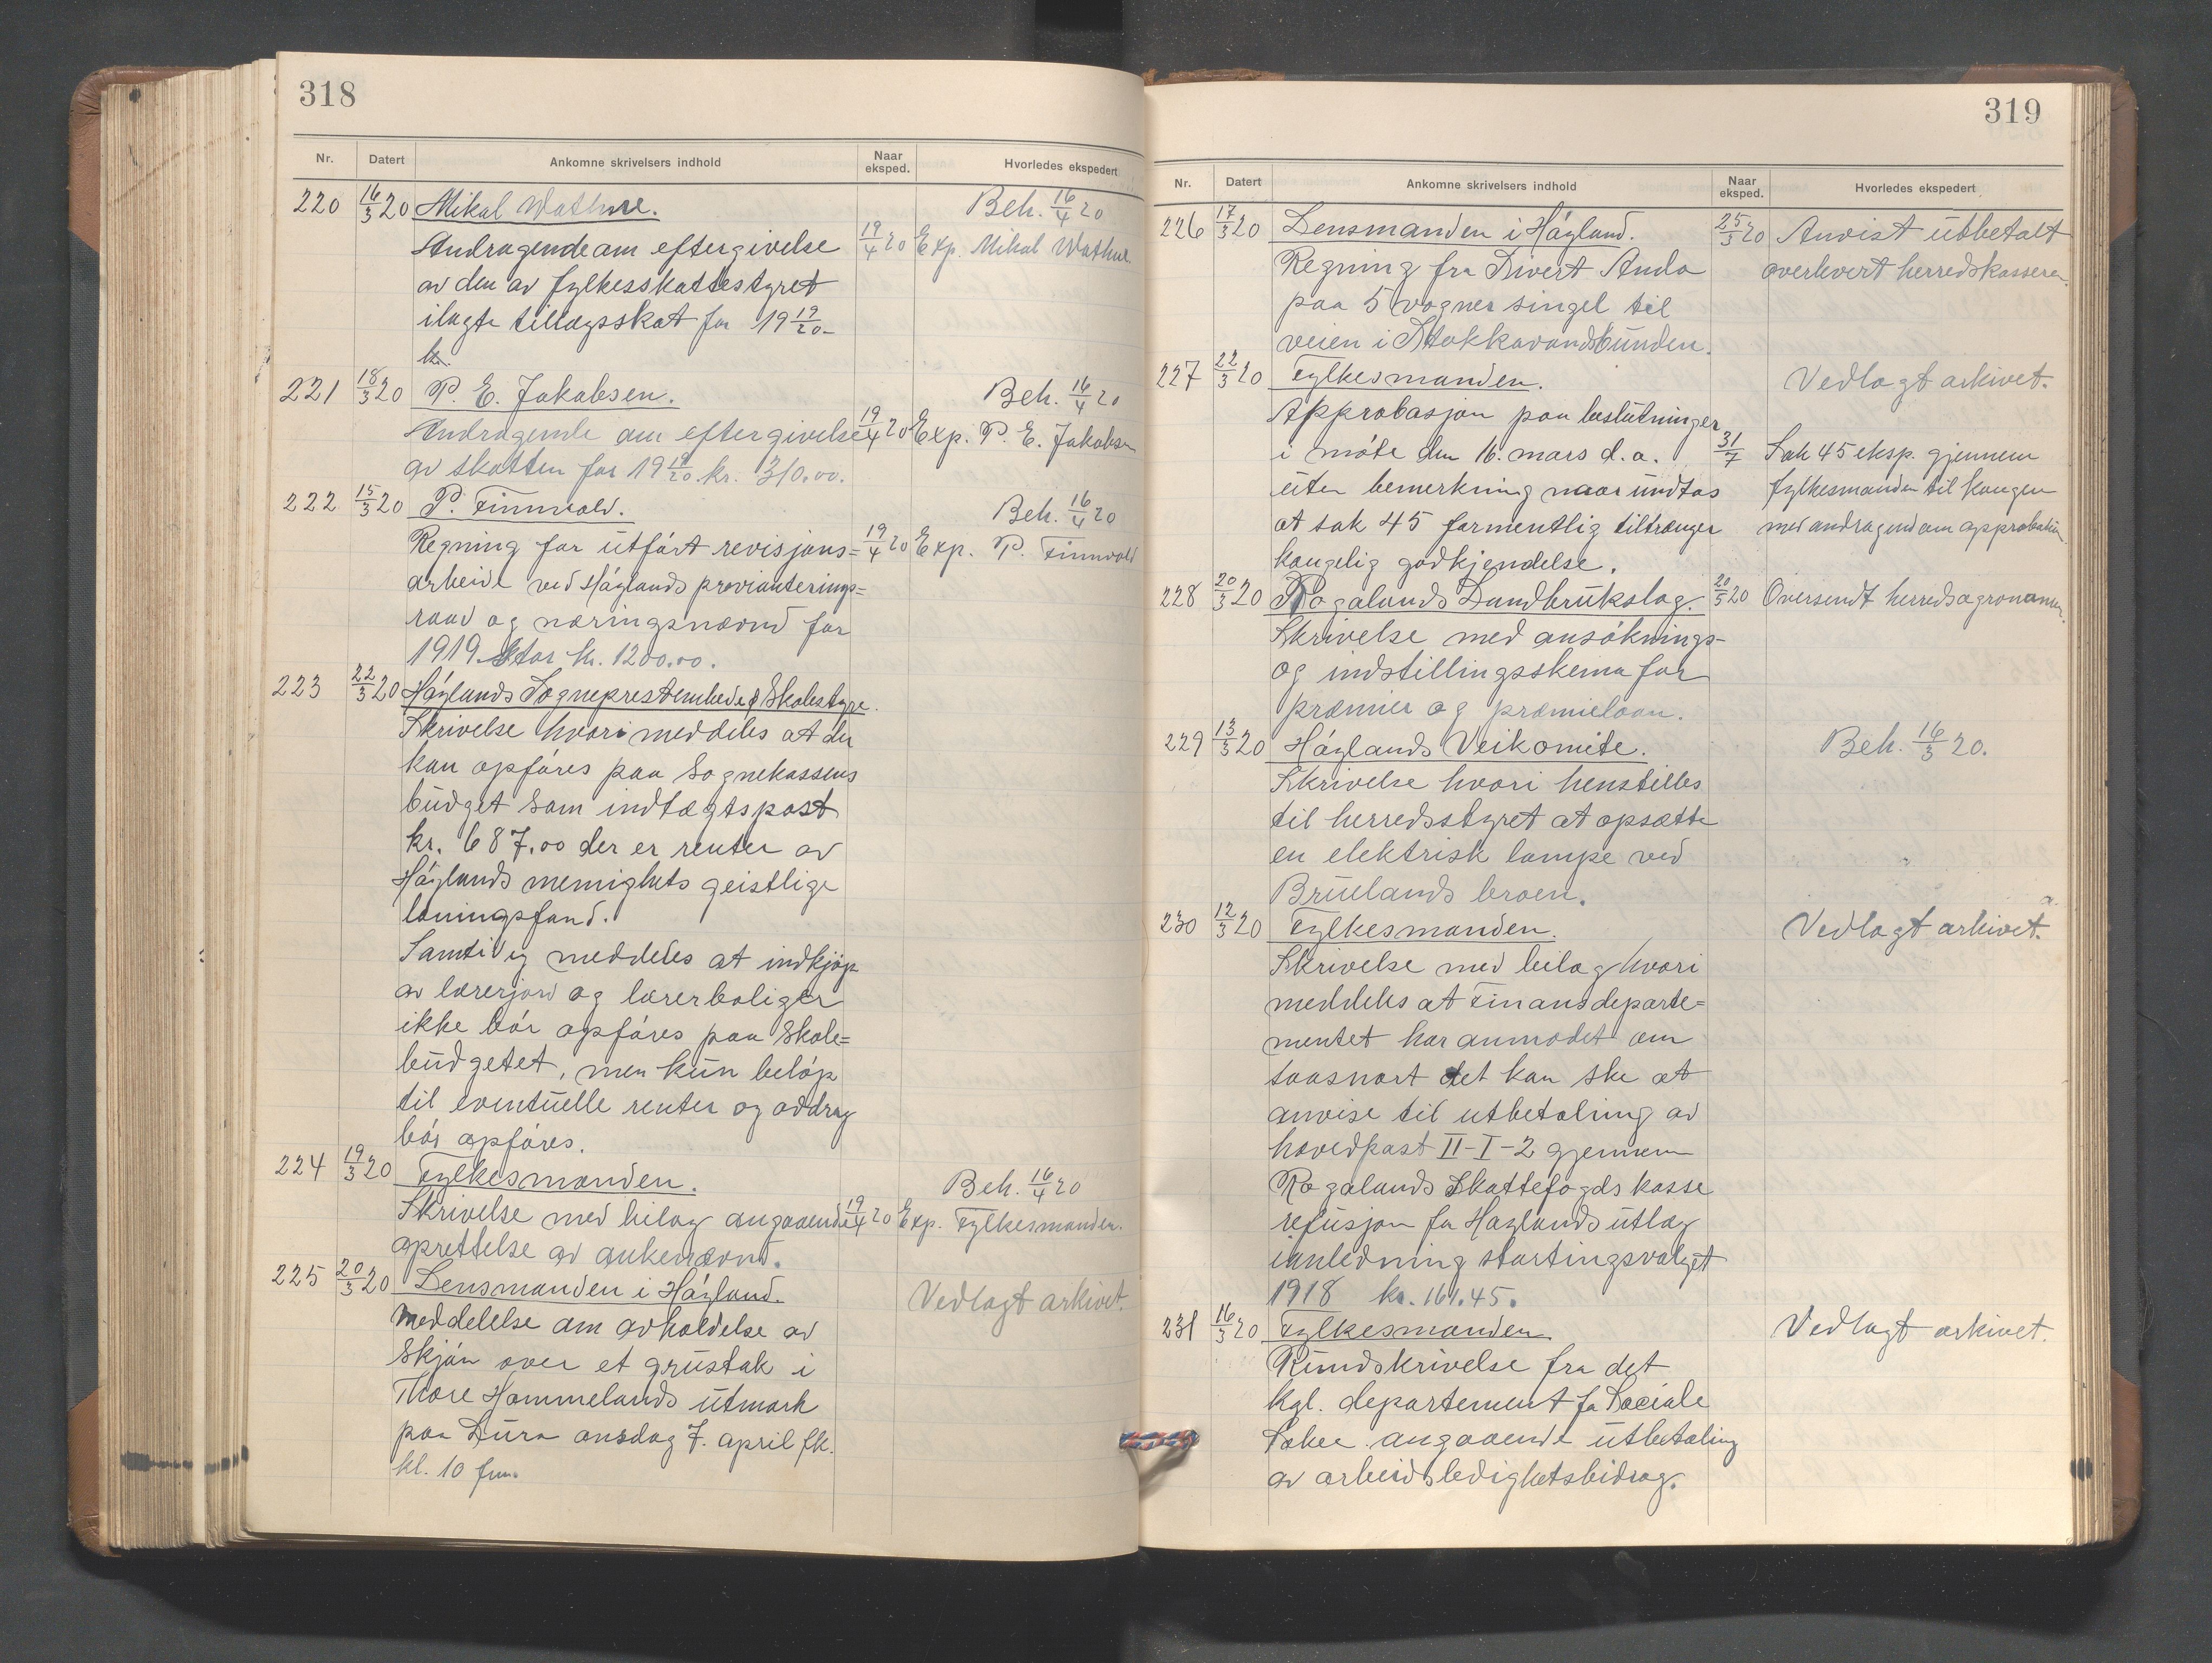 318
Nr. Datert Ankomne skrivelsers indhold Naar eksped. Hvorledes ekspedert
220 16/3 20 Mikal Wathne. Beh. 16/4 20
Andragende om eftergivelse 19/4 20 Exp. Mikal Wathne.
av den av fylkesskattestyret
ilagte tillægsskat for 19 19/20
kr.
221 18/3 20 P. E. Jakobsen. Beh. 16/4 20
Andragende om eftergivelse 19/4 20 Exp. P. E. Jakobsen
av skatten for 19 19/20 kr. 310.00.
222 15/3 20 P. Finnvold. Beh. 16/4 20
Regning for utført revisjons= 19/4 20 Exp. P. Finnvold
arbeide ved Høylands provianterings=
raad og næringsnævnd for
1919 stor kr. 1200.00.
223 22/3 20 Høylands Sogneprestembede & Skolestyre.
Skrivelse hvori meddeles at der
kan opføres paa Sognekassens
budget som indtægtspost
kr. 687.00 der er renter av
Høylands menighets geistlige
løningsfond.
Samtidig meddeles at indkjøp
av lærerjord og lærerboliger
ikke bør opføres paa Skole=
budgetet, men kun beløp
til eventuelle renter og avdrag
bør opføres.
224 19/3 20 Fylkesmanden. Beh. 16/4 20
Skrivelse med bilag angaaende 19/4 20 Exp. Fylkesmanden.
oprettelse av ankenævnd.
225 20/3 20 Lensmanden i Høyland. Vedlagt arkivet.
Meddelelse om avholdelse av
Skjøn over et grustak i
Thore Hommelands utmark
paa Lura onsdag 7. april fk.
kl. 10 fm.
319
Nr. Datert Ankomne skrivelsers indhold Naar eksped. Hvorledes ekspedert
226 17/3 20 Lensmanden i Høyland. 25/3 20 Anvist utbetalt
Regning fra Sivert Anda overhvert herredskasserer.
paa 5 vogner singel til
veien i Stokkavandsbunden.
227 22/3 20 Fylkesmanden. Vedlagt arkivet.
Approbasjon paa beslutninger
i møte den 16. mars d.a. 31/7 Sak 45 eksp. gjennem
uten bemerkning naar undtas fylkesmanden til kongen
at sak 45 formentlig tiltrænger med andragende om approbation.
kongelig godkjendelse.
228 20/3 20 Rogalands Landbrukslag. 20/5 20 Oversendt herredsagronomen.
Skrivelse med ansøknings-
og indstillingsskema for
præmier og præmielaan.
229 13/3 20 Høylands Veikomite. Beh. 16/3 20.
Skrivelse hvori henstilles
til herredsstyret at opsætte
en elektrisk lampe ved
Bruelands broen.
230 12/3 20 Fylkesmanden. Vedlagt arkivet.
Skrivelse med bilag hvori
meddeles at Finansdeparte=
mentet har anmodet om
saasnart det kan ske at
anvise til utbetaling av
hovedpost II-I-2 gjennem
Rogalands Skattefogds kasse
refusjon for Høylands utlæg
i anledning stortingsvalget
1918 kr. 161.45.
231 16/3 20 Fylkesmanden Vedlagt arkivet.
Rundskrivelse fra det
kgl. departement for Sociale
Saker angaaende utbetaling
av arbeidsledighetsbidrag.